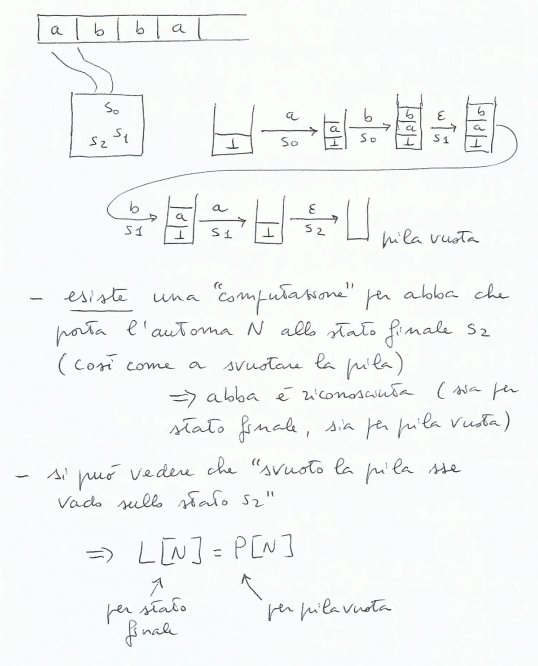 a b b a
S0
S2 S1
⊥ a S0 a ⊥ b S0 b a ⊥ ε S1 b a ⊥
b S1 a ⊥ a S1 ⊥ ε S2 pila vuota
- esiste una "computazione" per abba che
porta l'automa N allo stato finale S2
(così come a svuotare la pila)
=> abba è riconosciuta (sia per
stato finale, sia per pila vuota)
- si può vedere che "svuoto la pila sse
vado sullo stato S2"
=> L[N] = P[N]
per stato per pila vuota
finale